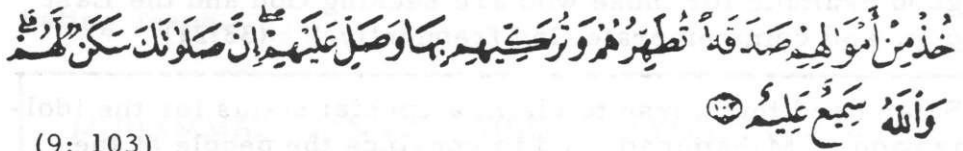 خُذْ مِنْ أَمْوَٰلِهِمْ صَدَقَةً تُطَهِّرُهُمْ وَتُزَكِّيهِم بِهَا وَصَلِّ عَلَيْهِمْ ۖ إِنَّ صَلَوٰتَكَ سَكَنٌ لَّهُمْ ۗ
وَٱللَّهُ سَمِيعٌ عَلِيمٌ ١٠٣
(9:103)